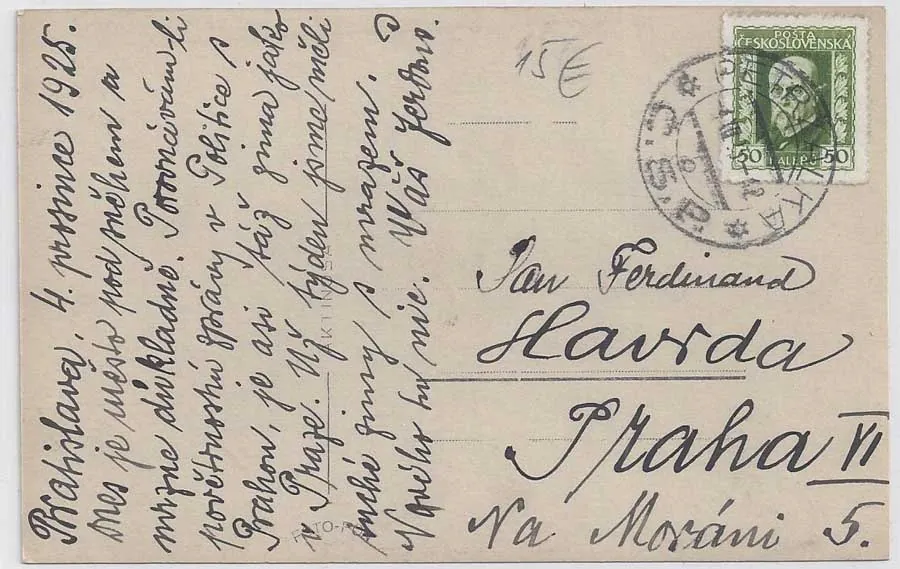 Bratislava, 4. prosince 1925.
Dnes je město pod sněhem a
mrzne důkladně. Porovnávám-li
povětrnostní zprávy v Politice s
Prahou, je asi táž zima jako
v Praze. Už týden jsme měli
suché zimy s mrazem.
Nového nic. Váš
15 E
POŠTA
ČESKOSLOVENSKÁ
50 HALÉŘŮ 50
Č.S.P.
Pan Ferdinand
Havrda
Praha VI
Na Moráni 5.